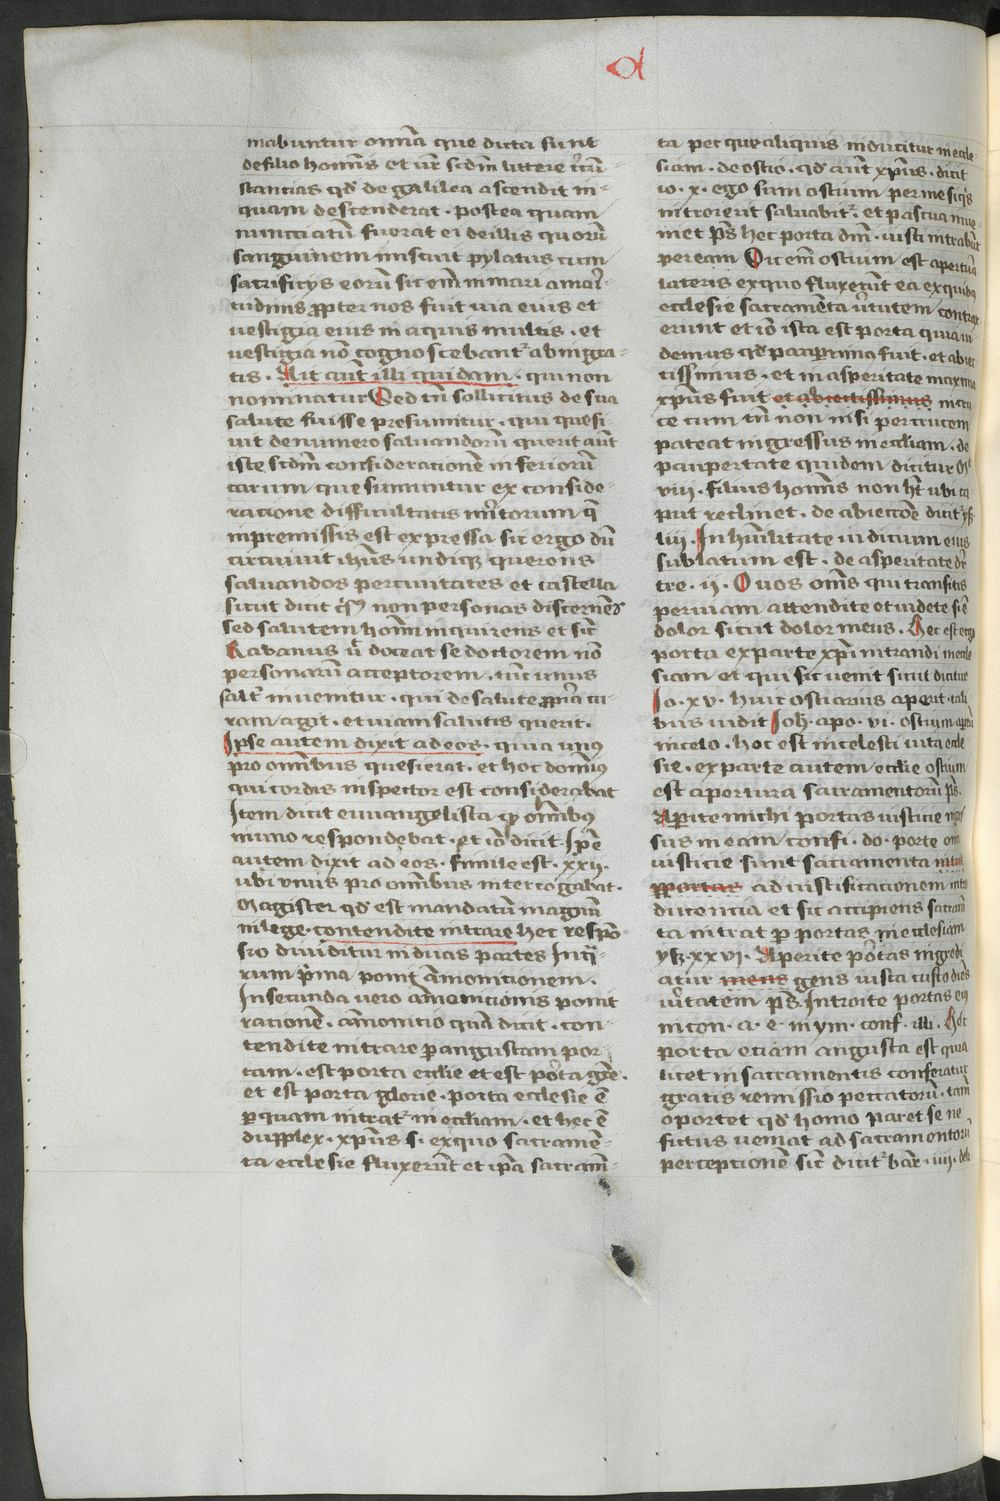 mabuntur om̄ia que dicta sunt
de filio homīs et
stancias qd̄ de galilea ascendit in
quam descenderat · postea quam
nuncciatū fuerat ei de illis quorū
sanguinem miscuit pylatus cum
sacrificys eorū sic em̄ in mari amari
tudinis ꝓpter nos fuit uia eius et
uestigia eius in aquis multis · et
uestigia nō cognoscebant᷑ ab ingra
tis · Ait aut̄ illi quidam · qui non
nominatur Sed tn̄ sollicitus de sua
salute fuisse presumitur · qui quesi
uit de numero saluandorū querit aut̄
iste scdm̄ consideracionē inferiorū
carum que sumuntur ex conside
racione difficultatis
in premissis est expressa sic ergo dū
circuiuit ih̄us undiqꝫ querens
saluandos per ciuitates et castella
sicut dicit non personas discernēs
sed salutem hom̄ inquirens et sic̄
Rabanus doceat se doctorem nō
personarū acceptorem · tūc unus
salt᷑ inuenitur · qui de salute ꝓpria cu
ram agit · et uiam salutis querit ·
Ipse autem dixit ad eos · quia unꝰ
pro om̄ibus quesierat · et hoc domīꝰ
qui cordis inspector est considerabat
Item dicit euuangelista qꝫ om̄ibus
in uno respondebat · et iō dicit Ip̄e
autem dixit ad eos · simile est · xxii ·
ubi vnus pro om̄ibus interrogabat ·
Magister qd̄ est mandatū magnū
in lege · contendite intrare hec respō
sio diuiditur in duas partes
rum p̄ma ponit āmonicionem ·
In secunda uero āmonicionis ponit
racionē · āmonitio qn̄ dicit · con
tendite intrare ꝑ angustam por
tam · est porta ecclie et est pōrta grē ·
et est porta glorie · porta ecclesie ē
ꝑ quam intrat᷑ in eccliam · et hec ē
dupplex · xp̄us s · ex quo sacramē
ta ecclesie fluxerūt et ip̄a sacram̄
ta per que aliquis inducitur in eccle
siam · de ostio · qd̄ aut̄ xp̄us · dicit
io · x · ego sum ostium per me siq̄s
introierit saluabit᷑ · et pascua inue
niet ps̄ hec porta dn̄i · iusti intrabūt
per eam Sic em̄ ostium est apertura
lateris ex quo fluxerūt ea ex quibꝰ
ecclesie sacramēta ūtutem contrax
erunt et iō ista est porta quia ui
demus qd̄ pauprimꝰ fuit · et abiec
tissimus · et in asperitate maxima
xp̄us fuit et abiectissimus in cru
ce cum tn̄ non nisi per crucem
pateat ingressus in eccliam · de
paupertate quidem dicitur
viii · filius homīs non hꝫ ubi ca
put reclinet · de abiectōe dicit ysꝫ
liii · In hūilitate iudicium eius
sublatum est · de asperitate dr̄
tre · ii · O uos om̄s qui transitis
per uiam attendite et uidete si ē
dolor sicut dolor meus · Hec est ergo
porta ex parte xp̄i intrandi in eccle
siam et qui sic uenit sicut dicitur
Io · xv · huic ostiarius aperit · tali
bus uidit Joh̄ · apo · vi · ostium
in celo · hoc est in celesti uita eccle
sie · ex parte autem ecclie ostium
est apertura sacramentorū ps̄ ·
Aperite michi portas iusticie
sus in eam confi · do · porte
iusticie sunt sacramenta
ꝓportas ad iustificacionem
ducencia et sic accipiens sacram̄
ta intrat ꝑ portas in ecclesiam
ysꝫ xxvi · Aperite pōrtas ingredi
atur mens gens iusta custodiēs
ūitatem ps̄ · Introite portas eiꝰ
in con · a · e · in ym · conf · illi · Hec
porta eciam angusta est quia
licet in sacramentis conferatur
gratis remissio peccatorū · tam̄
oportet qd̄ homo paret se ne
fictus ueniat ad sacramentorū
perceptionē sic̄ dicit᷑ bar̄ · iiii ·